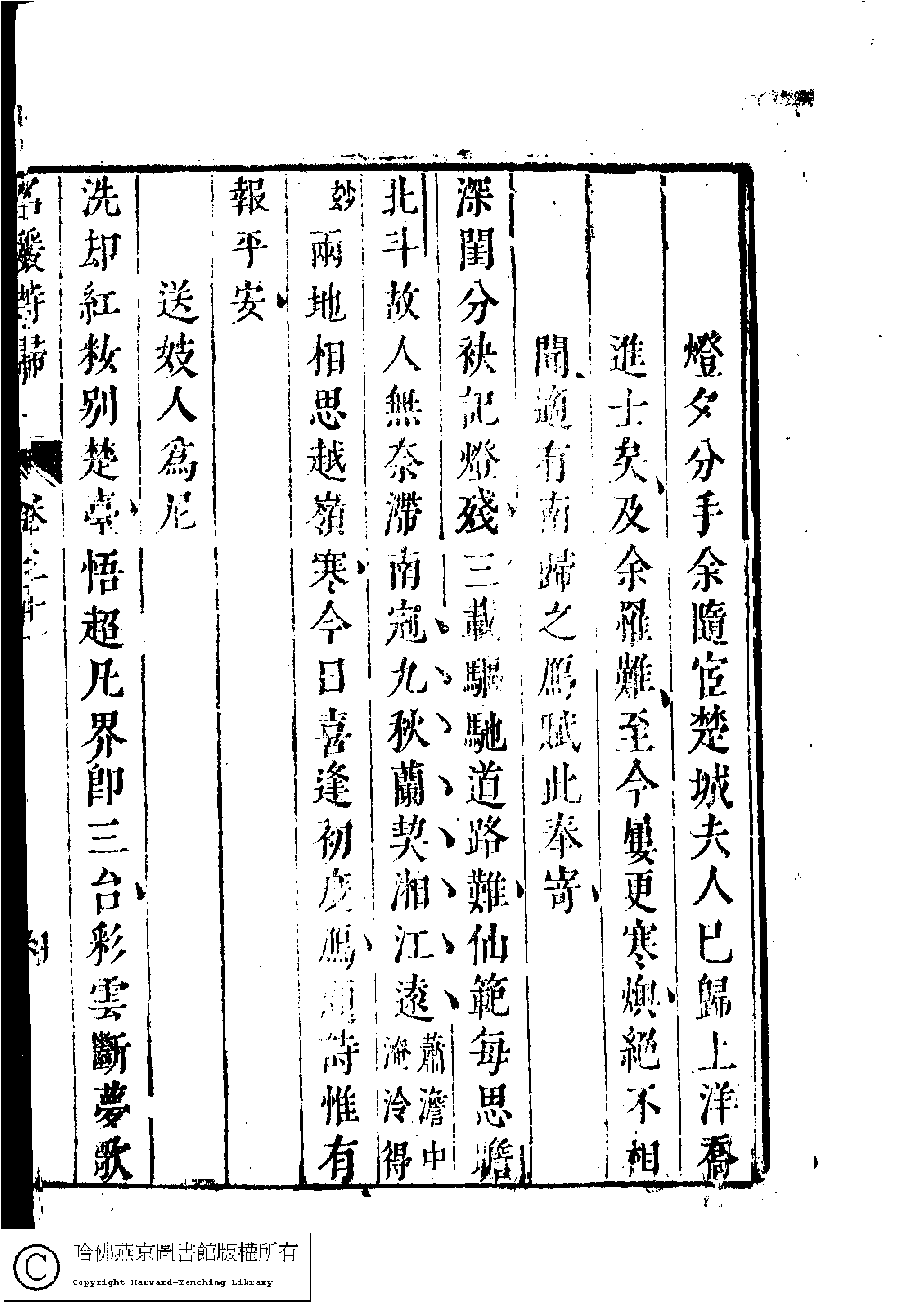 燈夕分手余隨宦楚城夫人已歸上洋喬
進士矣及余罹難至今屢更寒燠絕不相
聞適有南歸之鴈賦此奉寄
深閨分袂記燈殘三載驅馳道路難仙範每思瞻
北斗故人無奈滯南冠九秋蘭契湘江遠蕭澹中淹泠得
妙兩地相思越嶺寒今日喜逢初度鴈題詩惟有
報平安
送妓人爲尼
洗却紅粧別楚臺悟超凡界卽三台彩雲斷夢歌
名媛詩歸
卷之
哈佛燕京圖書館版權所有
Copyright Harvard-Yenching Library